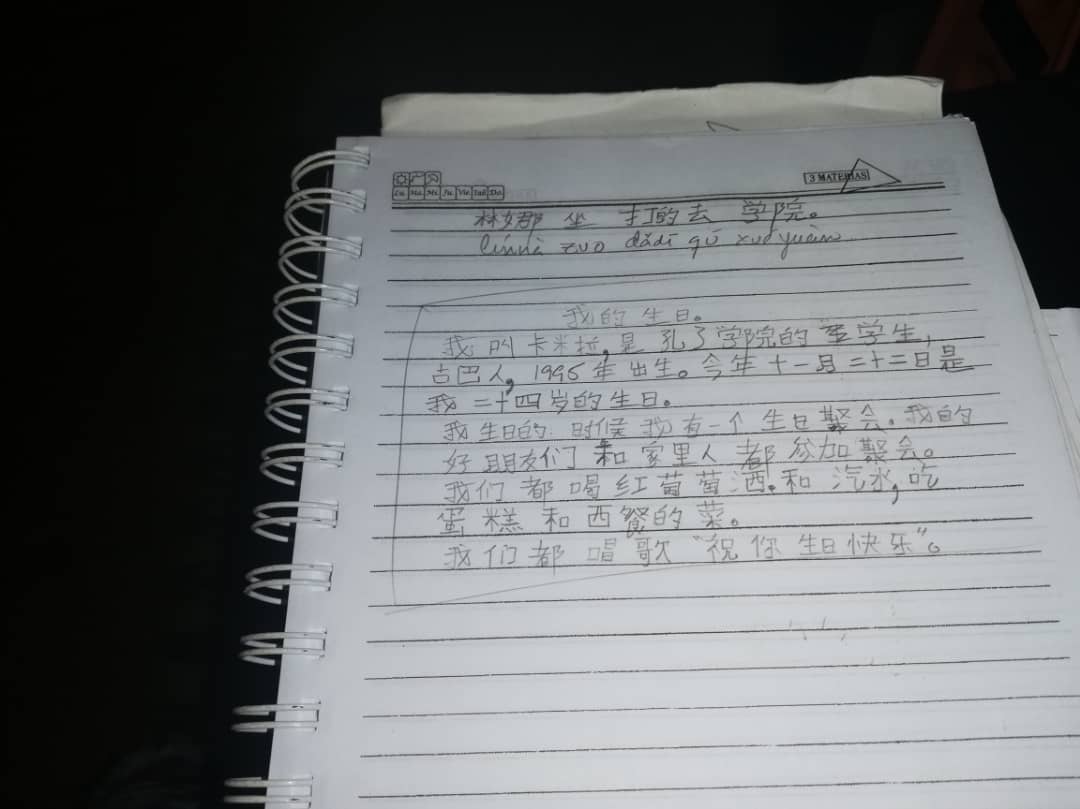 Lu Ma Mi Ju Vie Sab Do
3 MATERIAS
林娜 坐 打的去 学院。
línnà zuo dǎdī qù xuéyuàn
我的生日。
我叫卡米拉,是孔子学院的学生,
古巴人, 1995年出生。今年十一月二十二日是
我二十四岁的生日。
我生日的时候我有一个生日聚会。我的
好朋友们和家里人都参加聚会。
我们都喝红葡萄酒和汽水,吃
蛋糕和西餐的菜。
我们都唱歌“祝你生日快乐”。